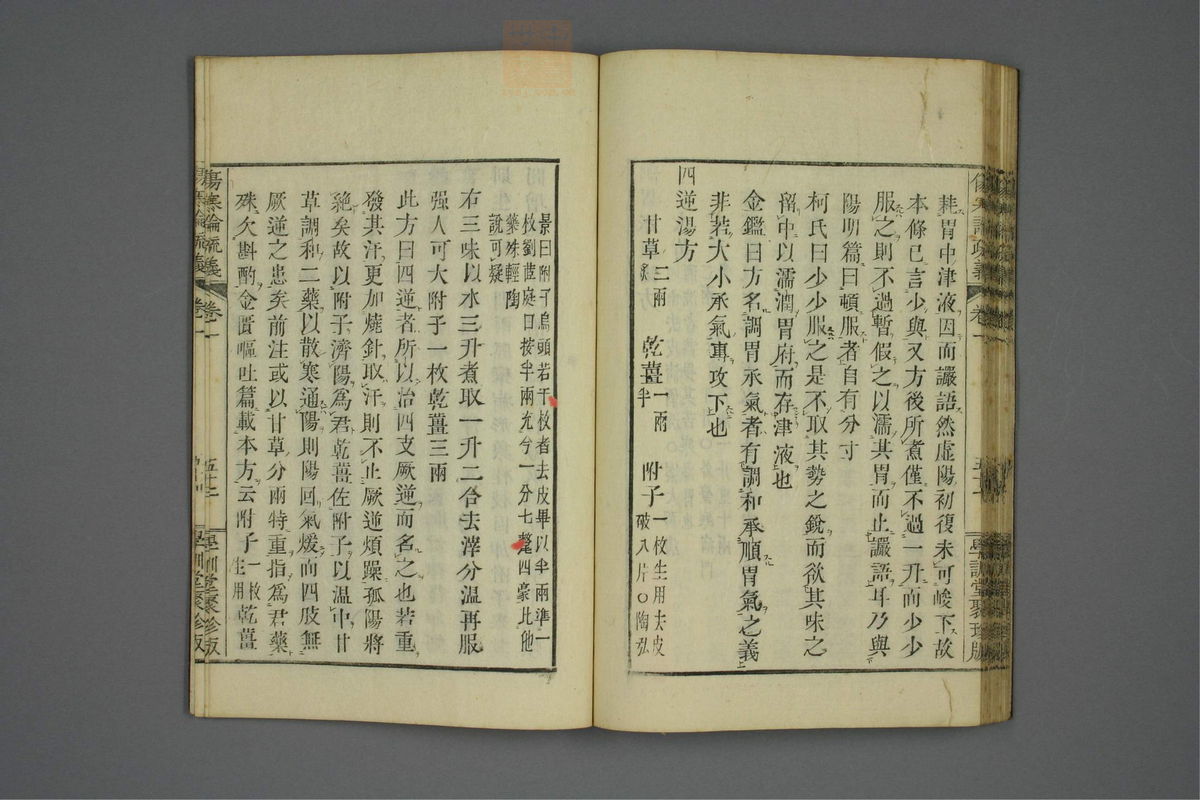 耗胃中津液因而讝語然虛陽初復未可峻下故
本條已言少與又方後所煮僅不過一升而少少
服之則不過暫假之以濡其胃而止讝語耳乃與
陽明篇曰頓服者自有分寸
柯氏曰少少服之是不取其勢之銳而欲其味之
留中以濡潤胃府而存津液也
金鑑曰方名調胃承氣者有調和承順胃氣之義
非若大小承氣專攻下也
四逆湯方
甘草二兩炙 乾薑一兩半 附子一枚生用去皮破八片○陶弘
景曰附子烏頭若干枚者去皮畢以半兩準一
枚劉茝庭曰按半兩允今一分七氂四豪比他
藥殊輕陶
說可疑
右三味以水三升煮取一升二合去滓分溫再服
强人可大附子一枚乾薑三兩
此方曰四逆者所以治四支厥逆而名之也若重
發其汗更加燒針取汗則不止厥逆煩躁孤陽將
絕矣故以附子濟陽爲君乾薑佐附子以溫中甘
草調和二藥以散寒通陽則陽回氣煖而四肢無
厥逆之患矣前注或以甘草分兩特重指爲君藥
殊欠斟酌金匱嘔吐篇載本方云附子一枚生用乾薑
傷寒論疏義 卷一 學訓堂聚珍版